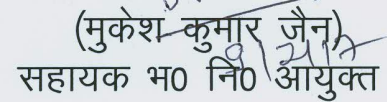 (मुकेश कुमार जैन)
सहायक भ0 नि0 आयुक्त